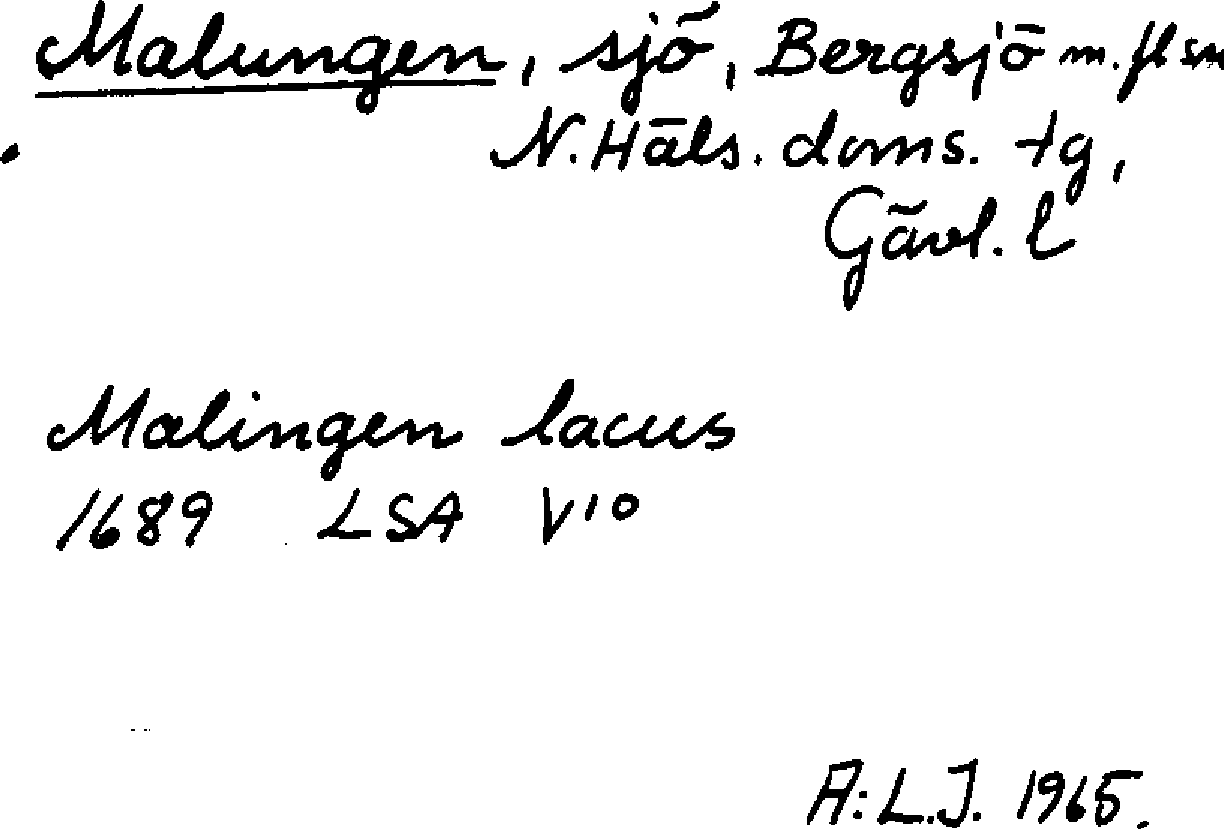 Malungen, sjö, Bergsjö m. fl sn
N. Häls. doms. tg,
Gävl. l
Malingen lacus
1689 LSA V10
A: L.J. 1965.